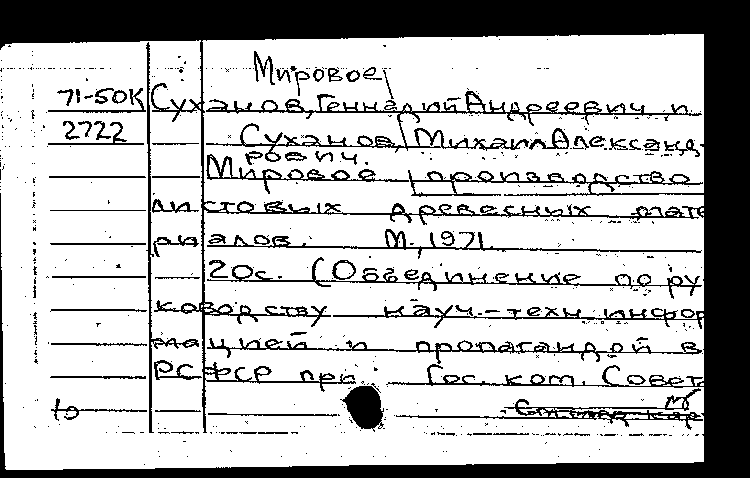 Мировое
71-50К Суханов, Геннадий Андреевич и
2722 Суханов, Михаил Александ-
рович.
Мировое производство
листовых древесных мате
риалов. М., 1971.
20с. (Объединение по ру-
ководству науч.-техн. инфор
мацией и пропагандой в
РСФСР при Гос. ком. Совета
to